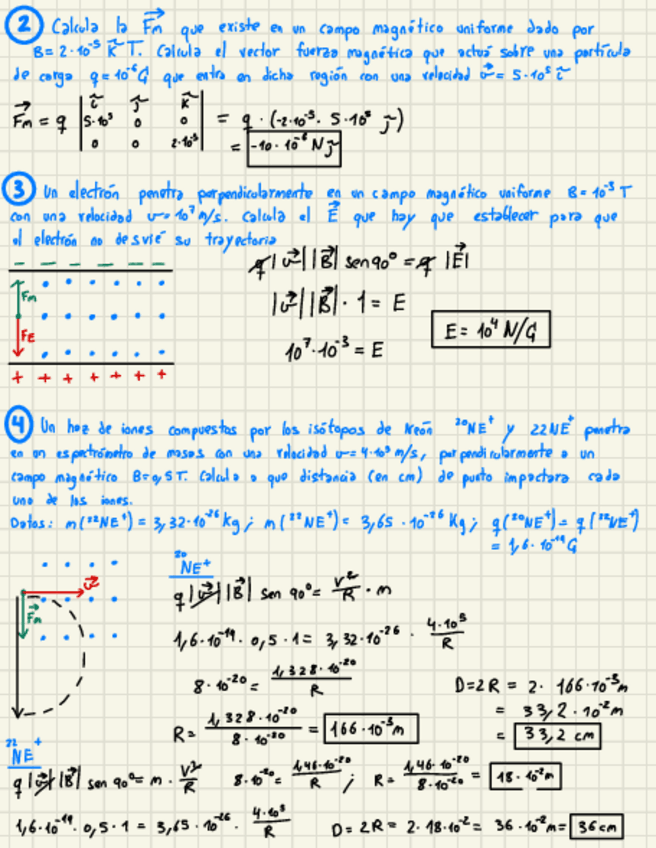 2 Calcula la Fm que existe en un campo magnético uniforme dado por
B = 2·10⁻⁵ k T. Calcula el vector fuerza magnética que actuá sobre una partícula
de carga q = 10⁻⁶ C que entra en dicha región con una velocidad v =
Fm = q | i j k | = q ·
= -10·10⁻⁶ N j
3 Un electrón penetra perpendicularmente en un campo magnético uniforme B = 10⁻³ T
con una velocidad v = 10⁷ m/s. Calcula el E que hay que establecer para que
el electrón no desvié su trayectoria
q |v| |B| sen 90° = q |E|
Fm
|v| |B| · 1 = E
FE
E = 10⁴ N/C
10⁷·10⁻³ = E
+ + + + + + +
4 Un haz de iones compuestos por los isótopos de Neón ²⁰NE⁺ y 22NE⁺ penetra
en un espectrómetro de masas con una velocidad v = 4·10⁵ m/s, perpendicularmente a un
campo magnético B = 0,5 T. Calcula a que distancia (en cm) de punto impactara cada
uno de los iones.
Datos: m(²²NE⁺) = 3,32·10⁻²⁶ Kg; m(²²NE⁺) = 3,65·10⁻²⁶ Kg; q(²⁰NE⁺) = q(²²NE⁺)
= 1,6·10⁻¹⁹ C
²⁰NE⁺
v
q |v| |B| sen 90° = v²/R · m
Fm
1,6·10⁻¹⁹ · 0,5 · 1 = 3,32·10⁻²⁶ · 4·10⁵/R
8·10⁻²⁰ = 1,328·10⁻²⁰/R
D = 2R = 2 · 166·10⁻³ m
= 33,2·10⁻² m
R = 1,328·10⁻²⁰/8·10⁻²⁰ = 166·10⁻³ m
= 33,2 cm
²²NE⁺
q |v| |B| sen 90° = m · v²/R 8·10⁻²⁰ = 1,46·10⁻²⁰/R ; R = 1,46·10⁻²⁰/8·10⁻²⁰ = 18·10⁻² m
1,6·10⁻¹⁹ · 0,5 · 1 = 3,65·10⁻²⁶ · 4·10⁵/R D = 2R = 2·18·10⁻² = 36·10⁻² m = 36 cm